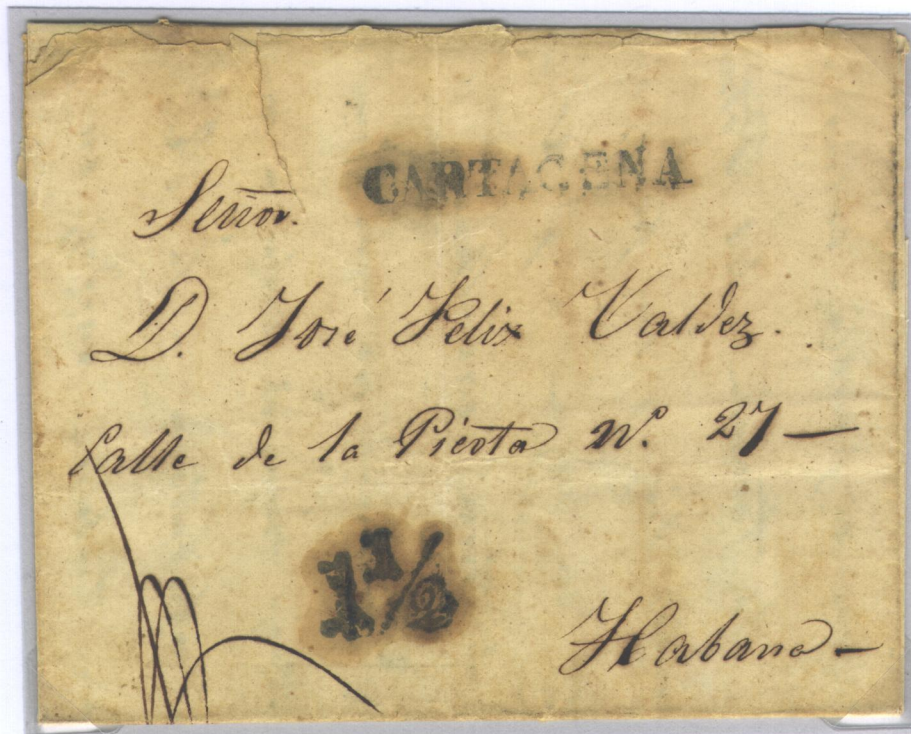 CARTAGENA
Señor.
D. José Felix Valdez.
Calle de la Picota N.º 27 —
1 1/2
Habana —